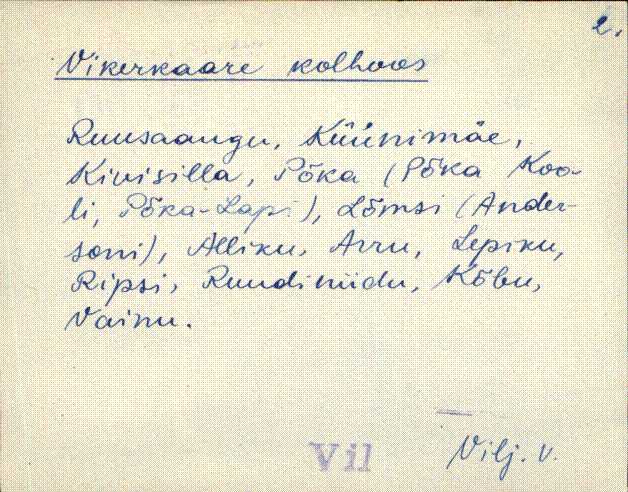 2.
Vikerkaare kolhoos
Ruusaangu, Küünimäe,
Kivisilla, Põka (Põka Koo-
li, Põka-Lapi), Lõmsi (Ander-
soni), Alliku, Arru, Lepiku,
Ripsi, Ruudiniidu, Kõbu,
Vainu.
Vil
Vilj. v.